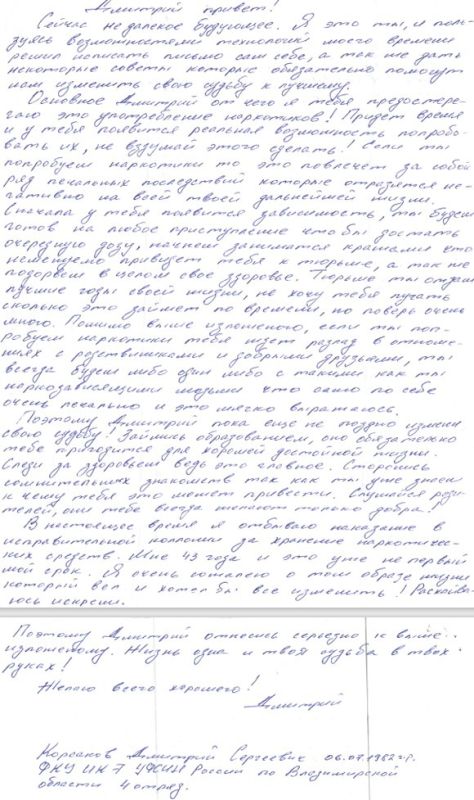 Дмитрий привет!
Сейчас не далекое будующее. Я это ты, и поль-
зуясь возможностями технологий моего времени
решил написать письмо сам себе, а так же дать
некоторые советы которые обязательно помогут
нам изменить свою судьбу к лучшему.
Основное Дмитрий от чего я тебя предостере-
гаю это употребление наркотиков! Придет время
и у тебя появится реальная возможность попробо-
вать их, не вздумай этого сделать! Если ты
попробуеш наркотики то это повлечет за собой
ряд печальных последствий которые отразятся не-
гативно на всей твоей дальнейшей жизни.
Сначала у тебя появится зависимость, ты будеш
готов на любое приступление что бы достать
очередную дозу, начнеш заниматся кражами что
неминуемо приведет тебя к тюрьме, а так же
подорвеш в целом свое здоровье. Тюрьме ты отдаш
лучшие годы своей жизни, не хочу тебя пугать
сколько это займет по времени, но поверь очень
много. Помимо выше изложеного, если ты поп-
робуеш наркотики тебя ждет разлад в отноше-
ниях с родственниками и добрыми друзьями, ты
всегда будеш либо один либо с такими как ты
наркозависящими людьми что само по себе
очень печально и это мягко выражаюсь.
Поэтому Дмитрий пока еще не поздно измени
свою судьбу! Займись образованием, оно обязательно
тебе пригодится для хорошей достойной жизни.
Следи за здоровьем ведь это главное. Сторонись
сомнительных знакомств так как ты уже знаеш
к чему тебя это может привести. Слушайся роди-
телей, они тебе всегда желают только добра!
В настоящее время я отбываю наказание в
исправительной колонии за хранение наркотичес-
ких средств. Мне 43 года и это уже не первый
мой срок. Я очень сожалею о том образе жизни
который вел и хотел бы все изменить! Раскаива-
юсь искрени.
Поэтому Дмитрий отнесись серьезно к выше-
изложеному. Жизнь одна и твоя судьба в твоих
руках!
Желаю всего хорошего!
Дмитрий
Корсаков Дмитрий Сергеевич 06.07.1982 г.р.
ФКУ ИК 7 УФСИН России по Владимирской
области 4 отряд.